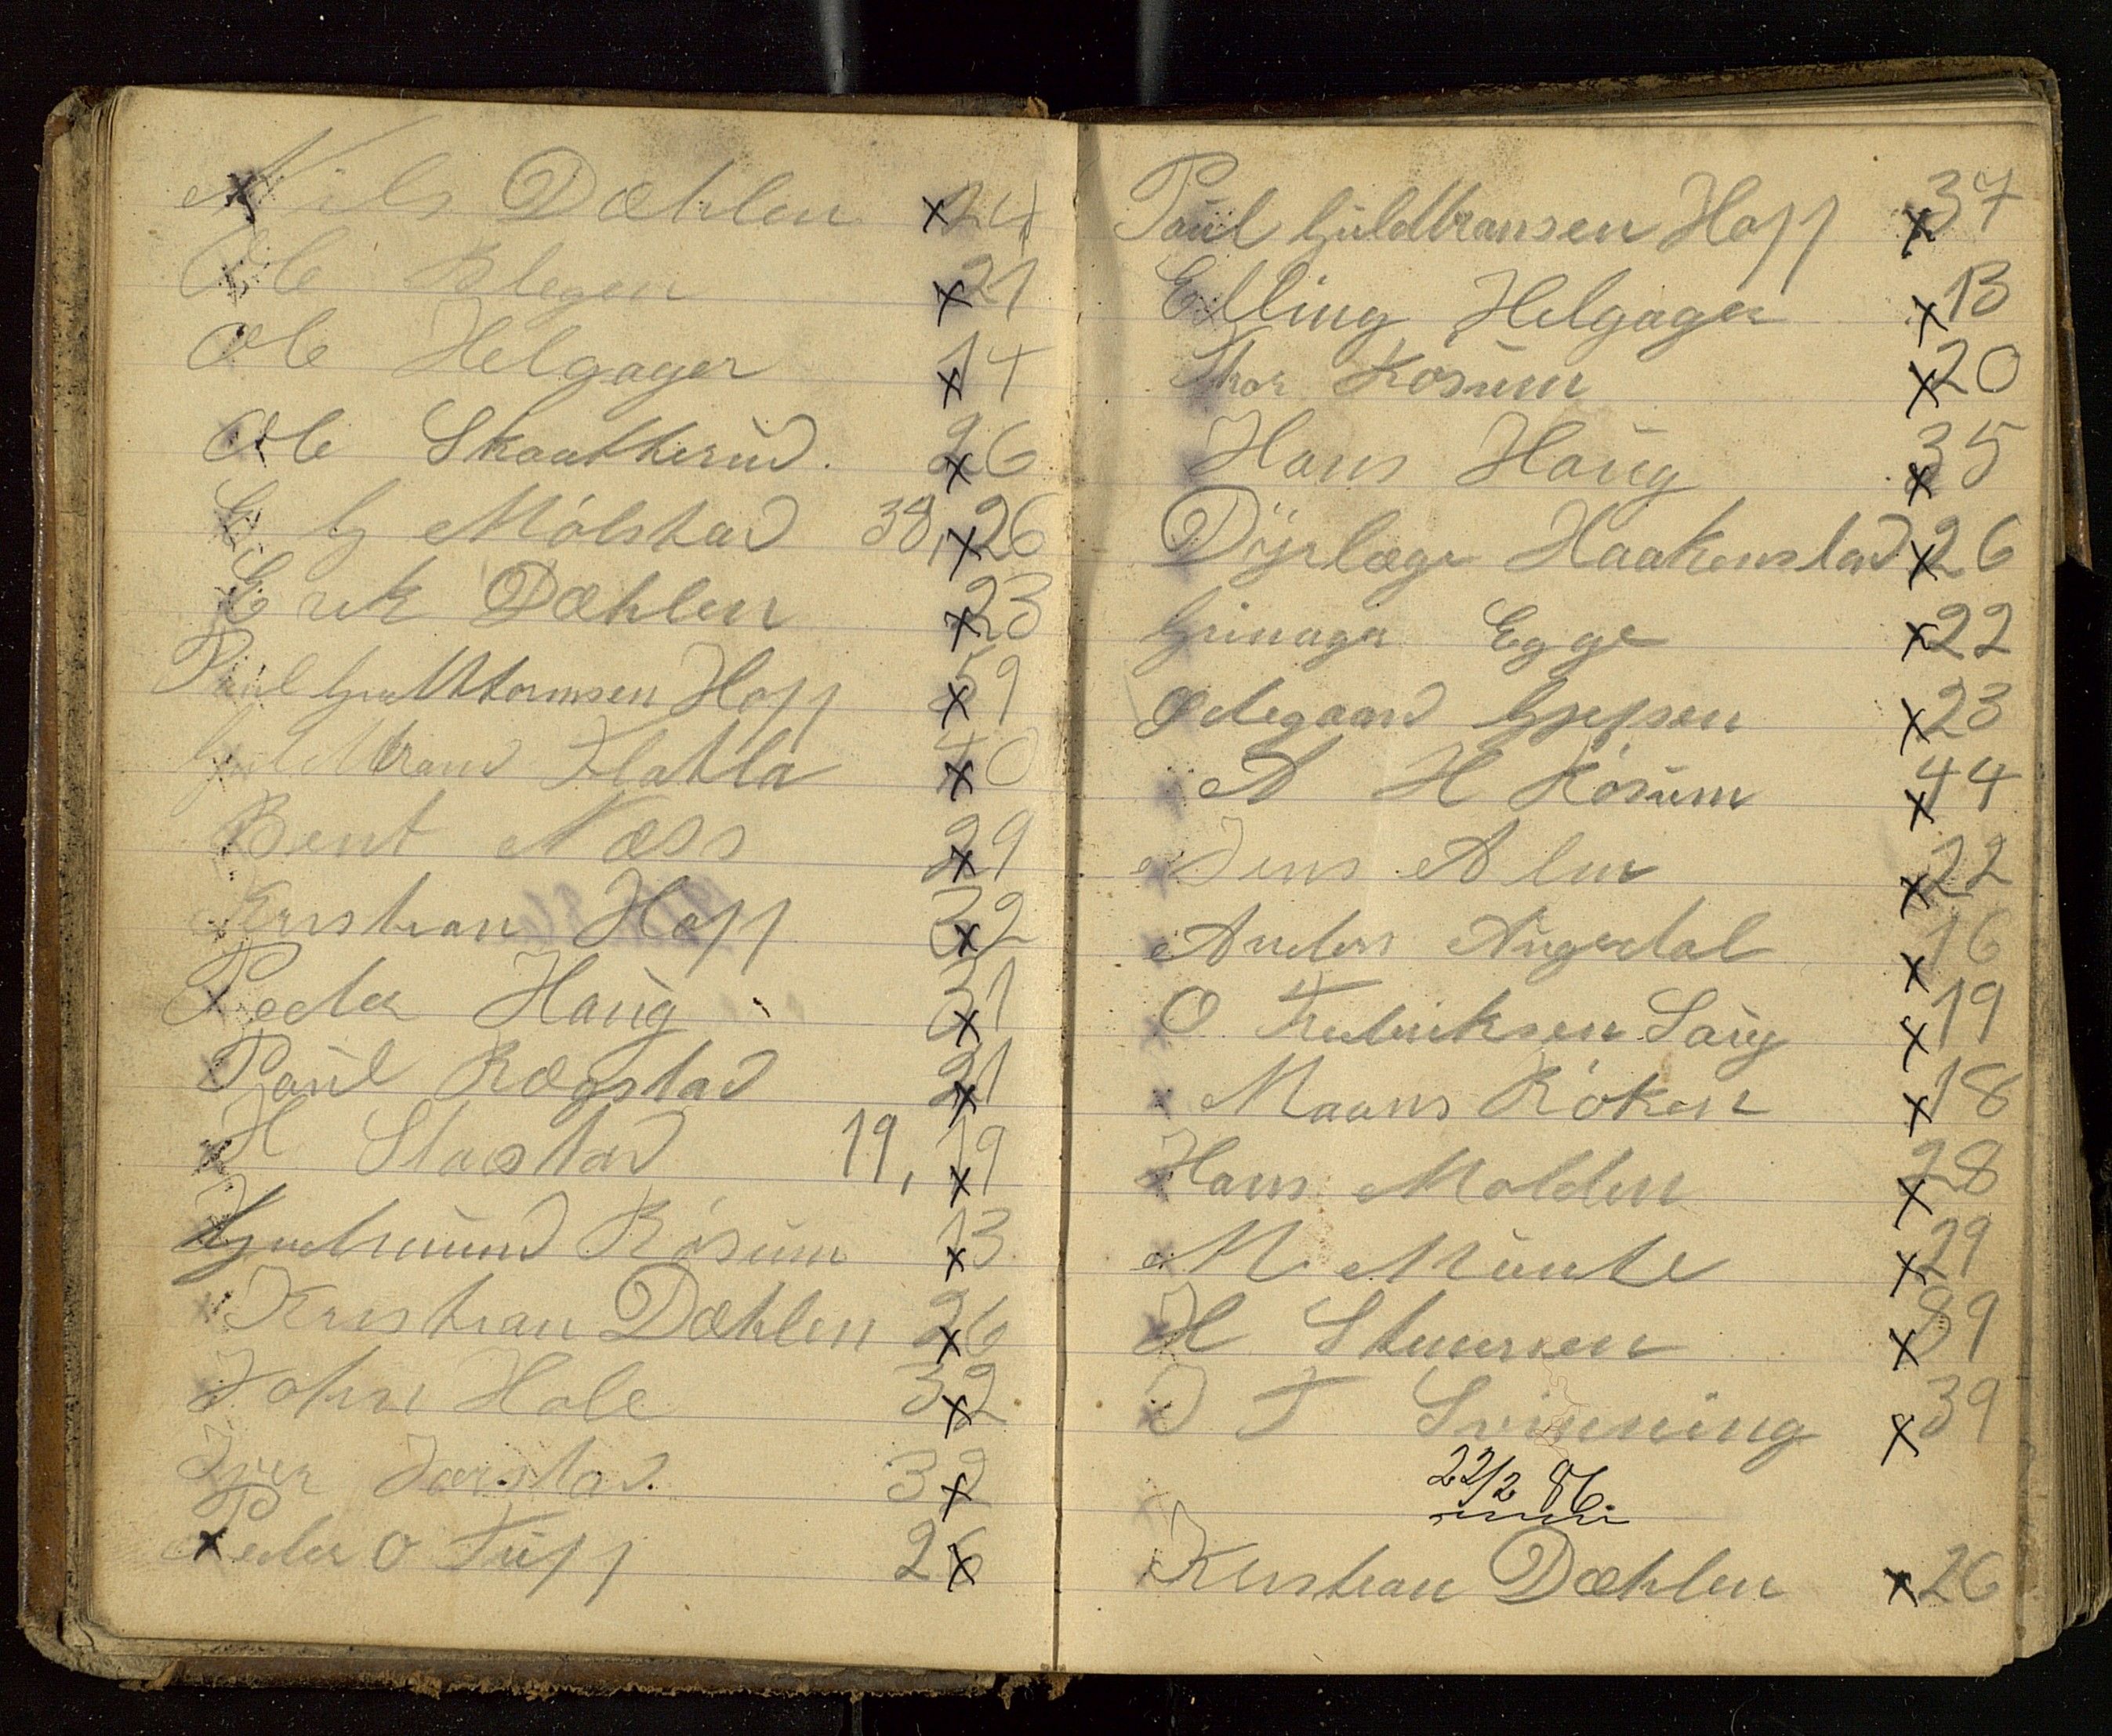 Nils Dæhlen x 24
Ole Blegen x 21
Ole Helgager x 14
Ole Skaatterud. x 26
E G Mölstad 38, x 26
Erik Dæhlen x 23
Paul Guttormsen Hopp x 59
Guldbrand Flatla x 40
Bent Næss x 29
Kristian Hopp x 32
Peder Haug x 31
Paul Rægstad x 21
H Stastad 19, x 19
Gudmund Rösum x 13
Kristian Dæhlen x 26
John Hole x 32
Iver Jarstad x 32
Peder O Tupp x 26
Paul Guldbransen Hopp x 37
Elling Helgager x 13
Thor Kosum x 20
Hans Haug x 35
Dyrlæge Haakenstad x 26
Grinager Egge x 22
Ødegaard Gjefsen x 23
A H Rösum x 44
Jens Alm x 22
Anders Angedal x 16
O Fredriksen Saug x 19
Maans Röken x 18
Hans Molden x 28
M Munte x 29
H Steensen x 89
J T Svinning x 39
22/2 86.
Kristian Dæhlen x 26